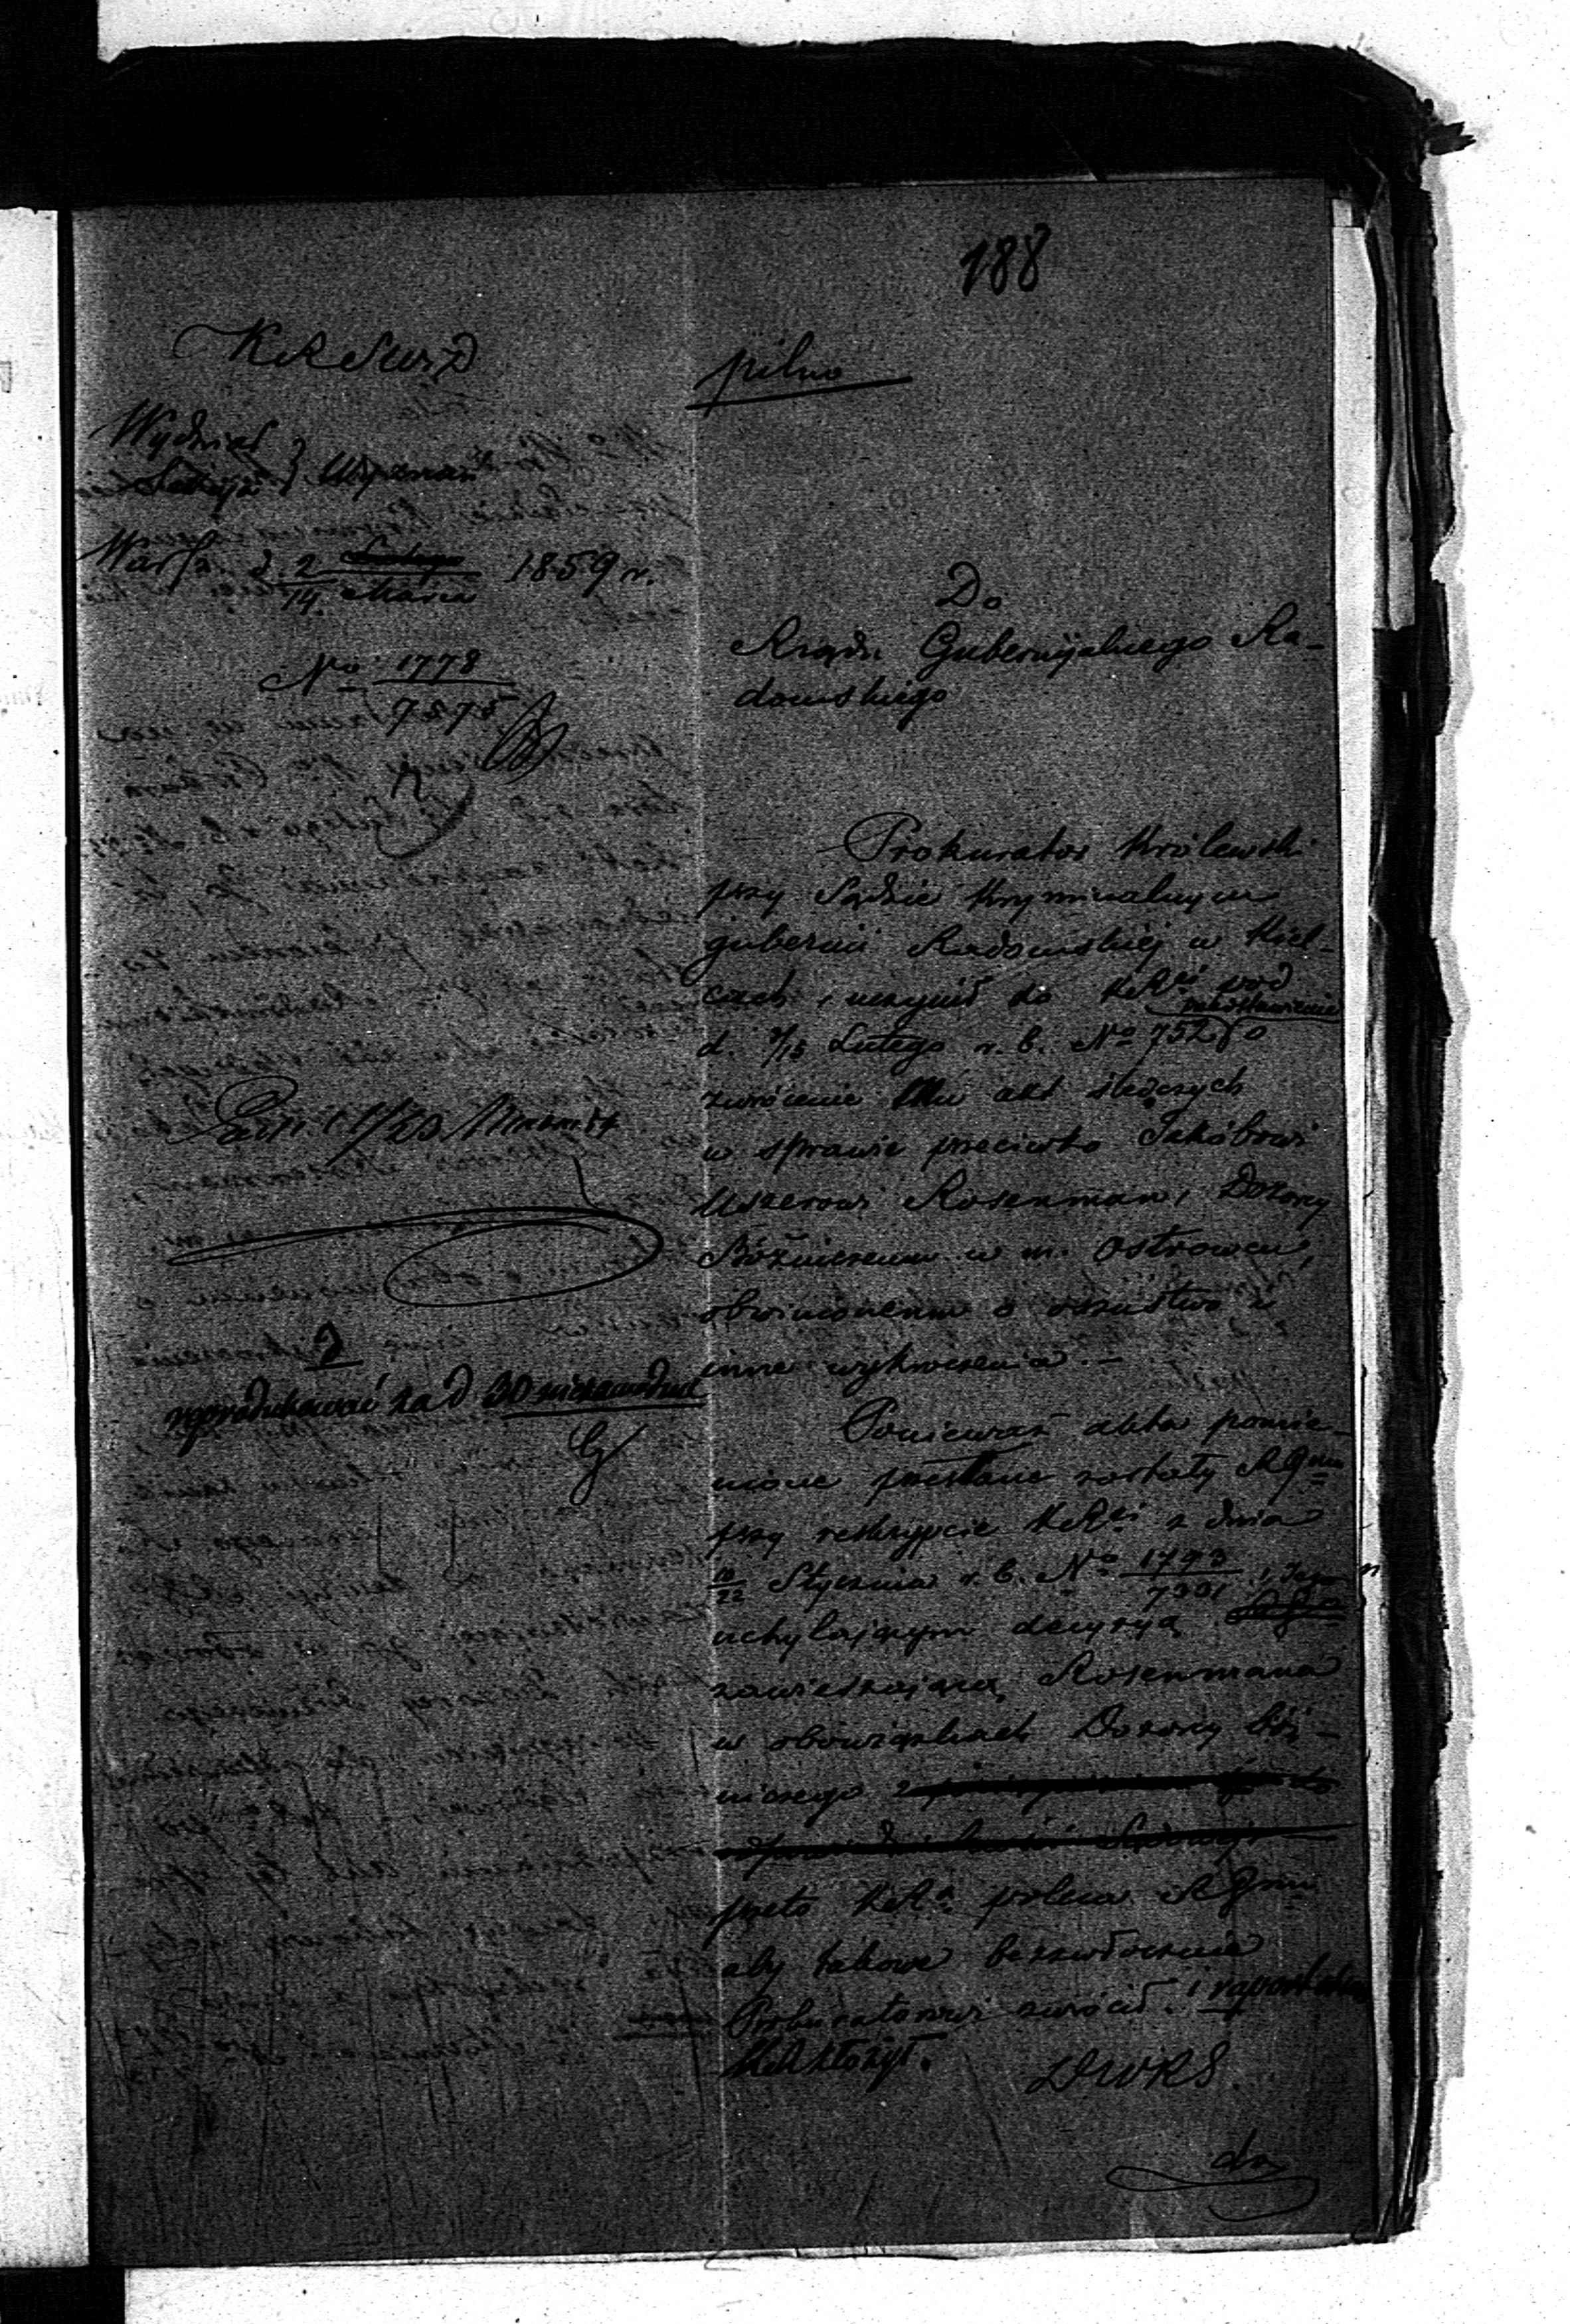 188
KRSWiD
pilno
Wydział
Sekcyja } Wyznań
Warsz. d. 2/14 Marca 1859 r.
No 1778/7575
Do
Rządu Gubernijalnego Ra-
domskiego
Prokurator Królewski
przy Sądzie Kryminalnym
gubernii Radomskiej w Kiel-
cach, uczynił do KRi pod
przedstawienie
d. 3/15 Lutego r. b. No 752 o
zwrócenie Mu akt śledczych
w sprawie przeciwko Jakóbowi
Uszerowi Rosenman, Dozorcy
Bóżniczemu w m. Ostrowcu,
obwinionemu o oszustwo i
inne wykroczenia.-
Ponieważ akta pomie-
nione przesłane zostały RGmu
przy reskrypcie KRi z dnia
10/22 Stycznia r. b. No 1793/7301
uchylającym decyzyą
zawieszającą Rosenmana
w obowiązkach Dozorcy Bóż-
niczego
przeto KRa poleca RGmu
aby takowe bezzwłocznie
Prokuratorowi zwrócił i
KRi złożył.
DWRS
2
reprodukować za d 30 niezawodnie